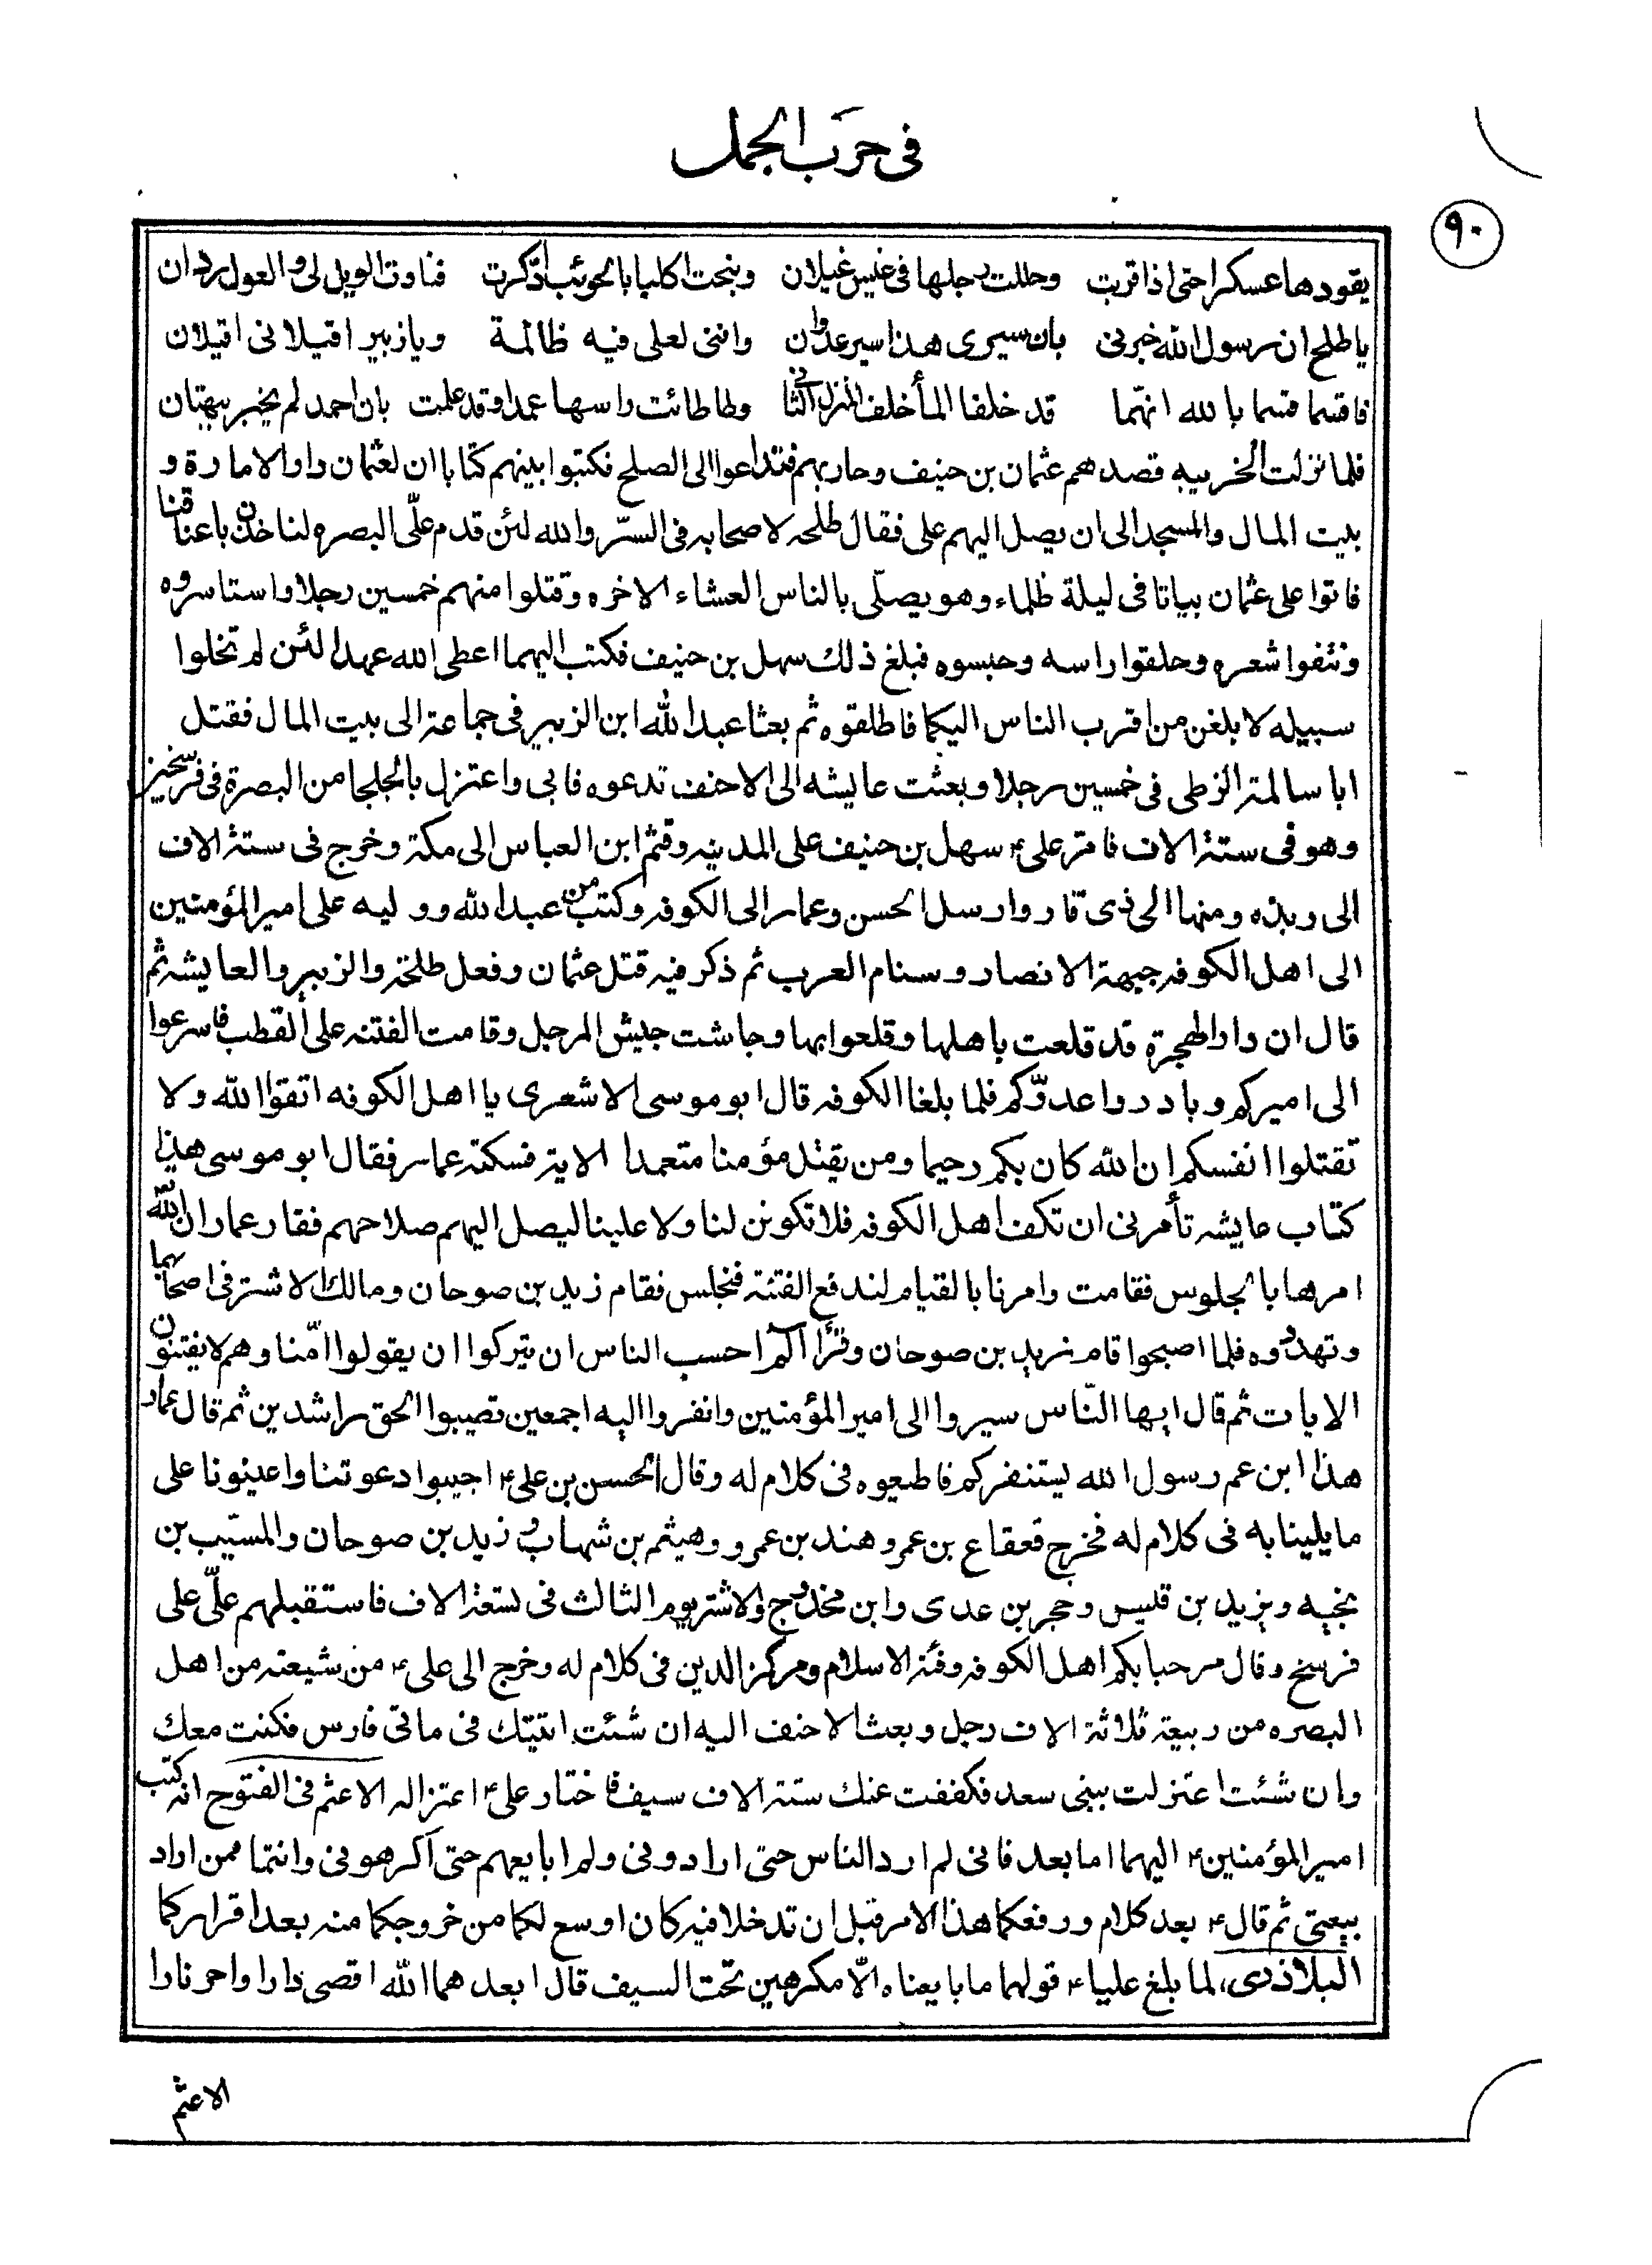 فى حرب الجمل
٩٠
يقودها عسكرا حتى اذا قربت وحللت رحلها فى غيس غيلان ونبحت اكلبا بالحوئب ادّكرت فنادت الويل لى والعول ردان
يا طلح ان رسول الله خبرنى بان سيرى هذا سير عدوان واننى لعلى فيه ظالمة ويا زبير اقيلانى اقيلان
فاقسما قسما بالله انهما قد خلفا المأ خلف المنزل الثانى وطاطائت راسها عمدا وقد علمت بان احمد لم يخبر ببهتان
فلما نزلت الخريبه قصدهم عثمان بن حنيف وحاربهم فتداعوا الى الصلح فكتبوا بينهم كتابا ان لعثمان دار الامارة و
بيت المال والمسجد الى ان يصل اليهم على فقال طلحه لاصحابه فى السرّ والله لئن قدم علىّ البصره لناخذن باعناقنا
فاتوا على عثمان بياتا فى ليلة ظلماء وهو يصلّى بالناس العشاء الاخره وقتلوا منهم خمسين رجلا واستاسروه
ونتفوا شعره وحلقوا راسه وحبسوه فبلغ ذلك سهل بن حنيف فكتب اليهما اعطى الله عهدا لئن لم تخلوا
سبيله لابلغن من اقرب الناس اليكما فاطلقوه ثم بعثا عبد الله ابن الزبير فى جماعة الى بيت المال فقتل
ابا سالمة الزطى فى خمسين رجلا وبعثت عايشه الى الاحنف تدعوه فابى واعتزل بالجلجا من البصرة فى فرسخين
وهو فى ستة الاف فامّر على ۴ سهل بن حنيف على المدينه وقثم ابن العباس الى مكة وخرج فى ستة الاف
الى ربذه ومنها الى ذى قار وارسل الحسن وعمار الى الكوفه وكتب من عبد الله ووليه على امير المؤمنين
الى اهل الكوفه جبهة الانصار وسنام العرب ثم ذكر فيه قتل عثمان وفعل طلحة والزبير والعايشه ثم
قال ان دار الهجرة قد قلعت باهلها وقلعوا بها وجاشت جيش المرجل وقامت الفتنه على القطب فاسرعوا
الى اميركم وبادروا عدوّكم فلما بلغا الكوفه قال ابو موسى الاشعرى يا اهل الكوفه اتقوا الله ولا
تقتلوا انفسكم ان الله كان بكم رحيما ومن يقتل مؤمنا متعمدا الاية فسكته عمار فقال ابو موسى هذا
كتاب عايشه تأمرنى ان تكف اهل الكوفه فلا تكونن لنا ولا علينا ليصل اليهم صلاحهم فقار عمار ان الله
امرها بالجلوس فقامت وامرنا بالقيام لندفع الفتنة فنجلس فقام زيد بن صوحان ومالك الاشتر فى اصحابهما
وتهدّدوه فلما اصبحوا قام زيد بن صوحان وقرأ الم احسب الناس ان يتركوا ان يقولوا امّنا وهم لا يفتنون
الايات ثم قال ايها النّاس سيروا الى امير المؤمنين وانفروا اليه اجمعين تصيبوا الحق راشدين ثم قال عمار
هذا ابن عم رسول الله يستنفركم فاطيعوه فى كلام له وقال الحسن بن على ۴ اجيبوا دعوتنا واعينونا على
ما بلينا به فى كلام له فخرج قعقاع بن عمر وهند بن عمرو وهيثم بن شهاب و زيد بن صوحان والمسيّب بن
نجبه ويزيد بن قليس وحجر بن عدى وابن مخدوج والاشتر يوم الثالث فى تسعة الاف فاستقبلهم علىّ على
فرسخ وقال مرحبا بكم اهل الكوفه وفئة الاسلام ومركز الدين فى كلام له وخرج الى على ۴ من شيعته من اهل
البصره من ربيعة ثلاثة الاف رجل وبعث الاحنف اليه ان شئت اتيتك فى ماتى فارس فكنت معك
وان شئت اعتزلت ببنى سعد فكففت عنك ستة الاف سيف فاختار على ۴ اعتزاله الاعثم فى الفتوح انه كتب
امير المؤمنين ۴ اليهما اما بعد فانى لم ارد الناس حتى ارادونى ولم ابايعهم حتى اكرهونى وانتما ممن اراد
بيعتى ثم قال ۴ بعد كلام ورفعكما هذا الامر قبل ان تدخلا فيه كان اوسع لكما من خروجكما منه بعد اقراركما
البلاذرى، لما بلغ عليا ۴ قولهما ما بايعناه الّا مكرهين تحت السيف قال ابعدهما الله اقصى دارا واحر نارا
الاعثم